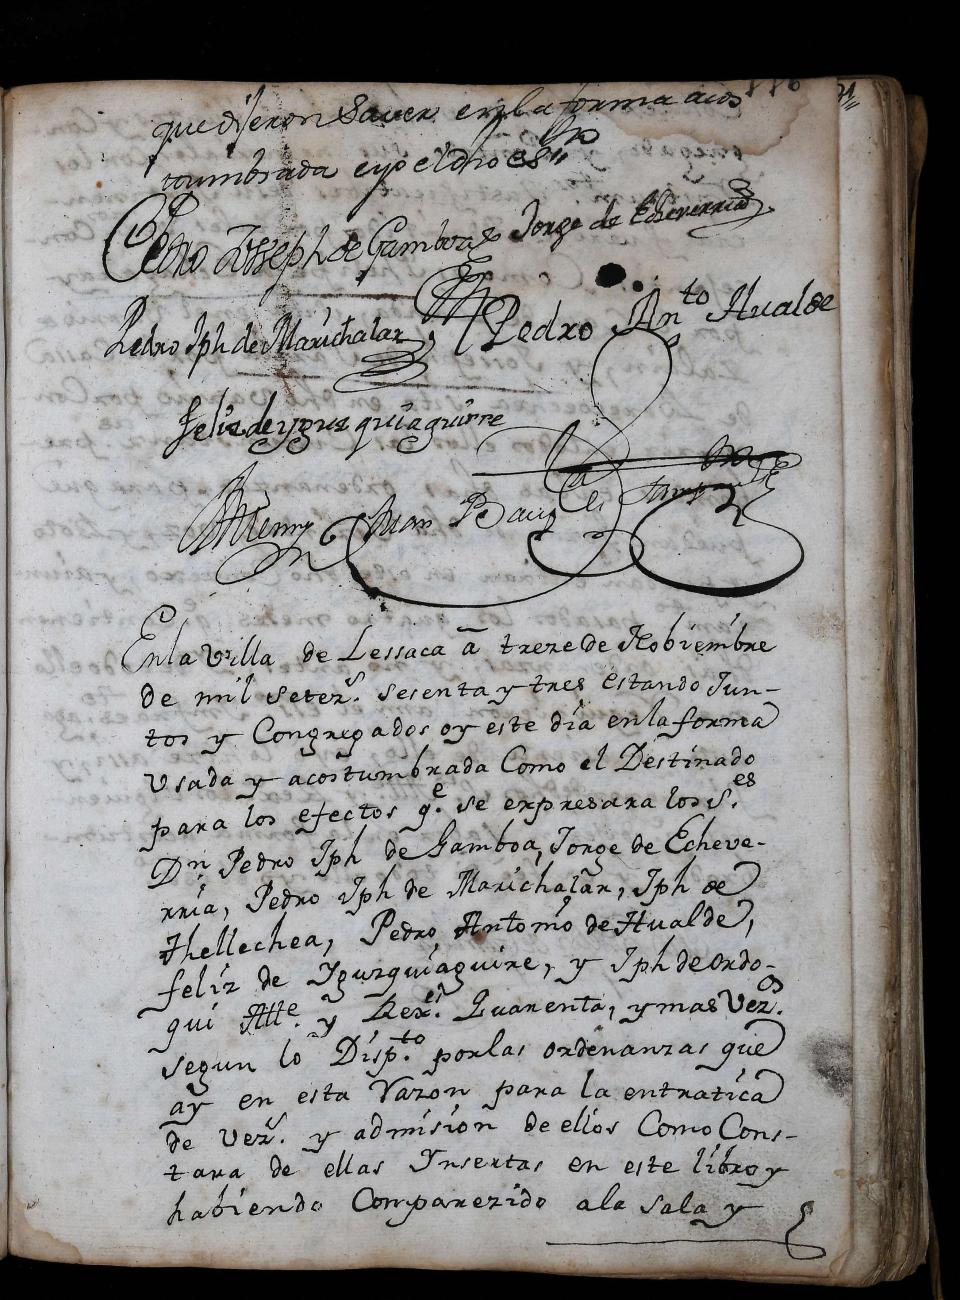 que dijeron Saver en la forma acos
tumbrada e yo el dho es.no
Pedro Joseph de Gamboa Jorge de Echeverria
Pedro Jph de Marichalar Pedro An.to Hualde
feliz de ygurzquiaguirre
Juan Baup.ta de
En la Villa de Lessaca â treze de Nobiembre
de mil setez.s sesenta y tres estando Jun-
tos y Congregados oy este dia en la forma
Usada y acostumbrada Como el Destinado
para los efectos q.e se expresara los S.es
Dn Pedro Jph de Gamboa, Jorge de Echeve-
rria, Pedro Jph de Marichalar, Jph de
Thellechea, Pedro Antonio de Hualde,
feliz de Ygurzquiaguirre, y Jph de ordo-
qui Alle. y Rex.es Quarenta, y mas Vez.os
segun lo Disp.to por las ordenanzas que
ay en esta Razon para la entratica
de vez.s y admision de ellos Como Cons-
tara de ellas Ynsertas en este libro y
habiendo Comparezido a la sala y